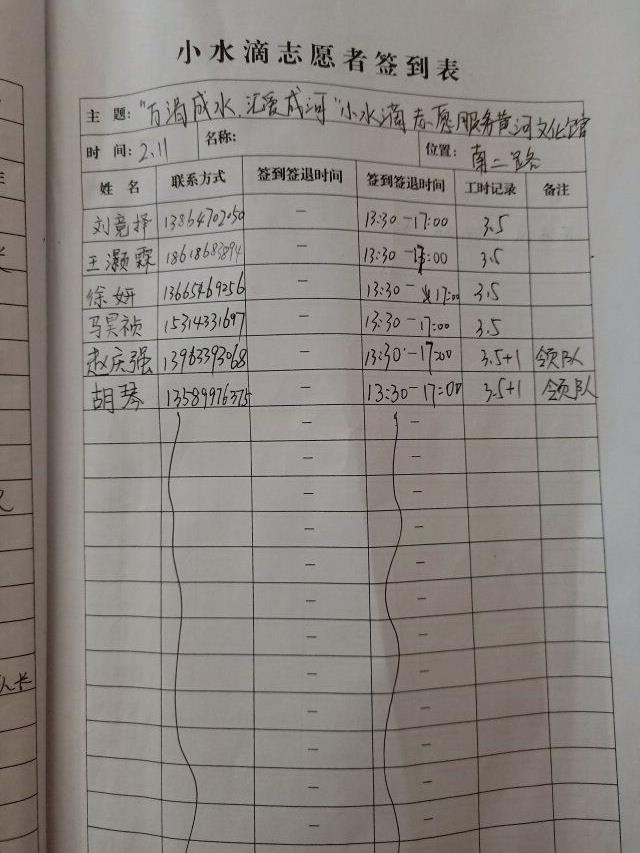 小水滴志愿者签到表
主 题: "万滴成水、汇爱成河"小水滴志愿服务黄河文化馆
时 间: 2.11 名称: 位置: 南二路
姓 名 联系方式 签到签退时间 签到签退时间 工时记录 备注
刘竟择 13864702050 — 13:30-17:00 3.5
王灏霖 — 13:30-17:00 3.5
徐妍 13665469256 — 13:30-17:00 3.5
马昊祯 15314331697 — 13:30-17:00 3.5
赵庆强 13963393068 — 13:30-17:00 3.5+1 领队
胡琴 13589976375 — 13:30-17:00 3.5+1 领队
— —
— —
— —
— —
— —
— —
— —
— —
— —
— —
— —
— —